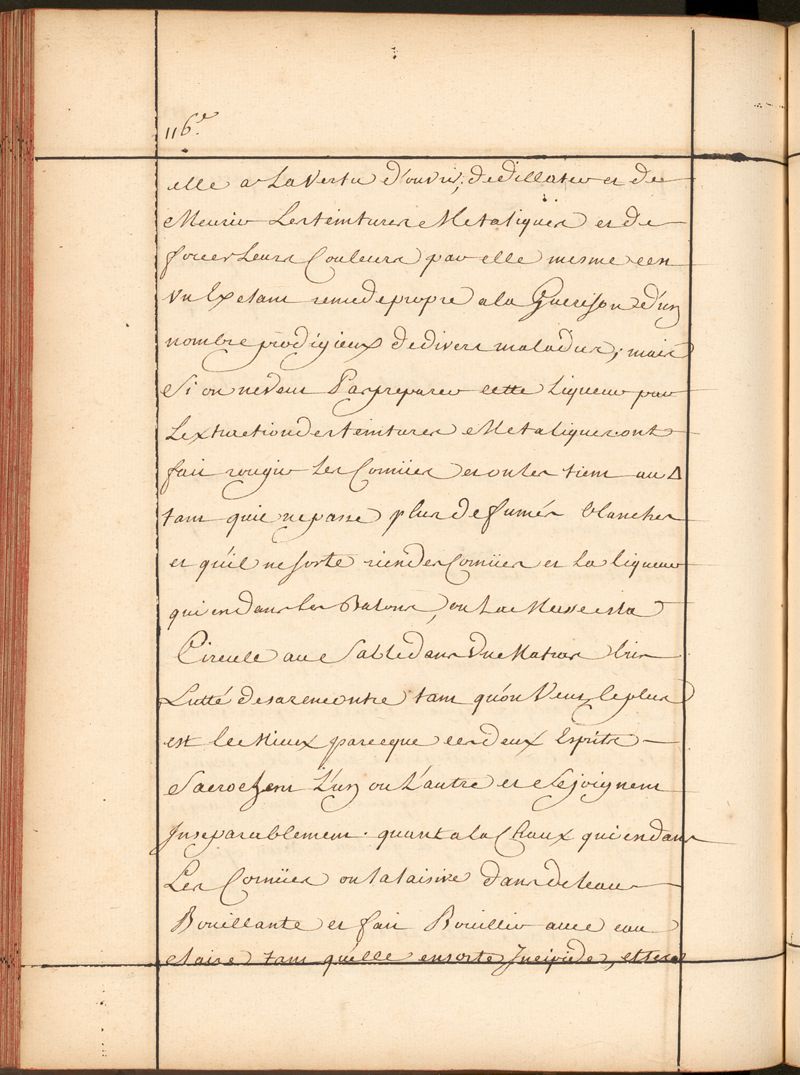 116.e
elle a La Vertu d'ouvrir, de dillater et de
Meurir Les teinturer Metaliquer et de
forcer Leurs Couleurs par elle mesme c'en
vn Ex etam remede propre a la Guerison d'un
nombre prodigieux de divers maladier; mais
Si on ne veut Pas preparer cette Liqueur par
Lextraction des teintures Metaliques ont
fait rougir Les Cornuer et on les tiem au △
tam qu'il ne passe plus de fumér blancher
et qu'il ne sorte rien des Cornuer et La liqueur
qui en dans les Balons, on La Meuve et la
Circule au Sable dans Vne Matras bien
Lutté de sa rencontre tam qu'on Veut, le plus
est le Mieux parceque ces deux Esprits
Sacrochent L'un ou L'autre et Se joignent
Inseparablement. quant a la Chaux qui en dans
Les Cornuer on la laisive dans de leau
Bouillante et fait Bouillir avec eau
Claire tam quélle en sorte Incipide,